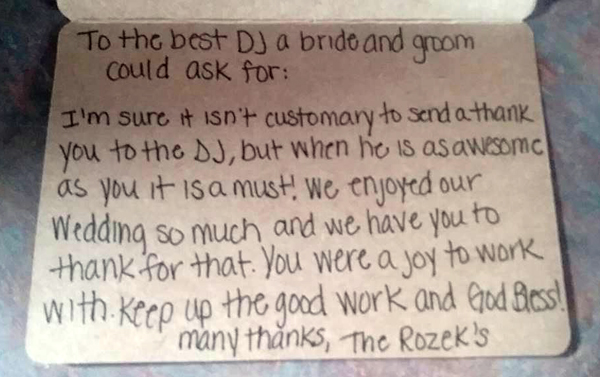 To the best DJ a bride and groom
could ask for:
I'm sure it isn't customary to send a thank
you to the DJ, but when he is as awesome
as you it is a must! We enjoyed our
Wedding so much and we have you to
thank for that. You were a joy to work
with. Keep up the good work and God Bless!
many thanks, The Rozek's